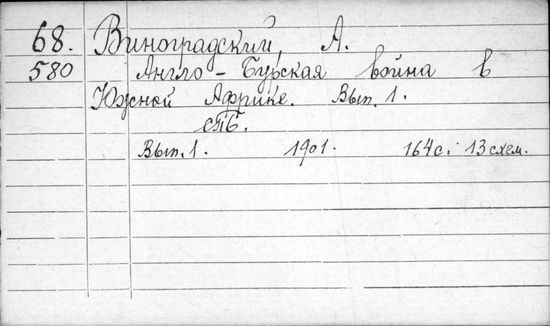 68. Виноградский, А.
580 Англо-Бурская война в
Южной Африке. Вып. 1.
СПБ.
Вып. 1. 1901. 164 с. 13 схем.